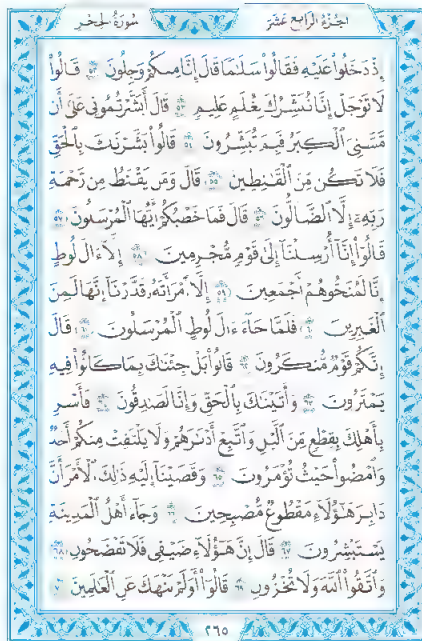 سُورَةُ الحِجْرِ الجُزْءُ الرَّابِعَ عَشَرَ
إِذْ دَخَلُوا۟ عَلَيْهِ فَقَالُوا۟ سَلَٰمًا قَالَ إِنَّا مِنكُمْ وَجِلُونَ ٥٢ قَالُوا۟
لَا تَوْجَلْ إِنَّا نُبَشِّرُكَ بِغُلَٰمٍ عَلِيمٍ ٥٣ قَالَ أَبَشَّرْتُمُونِى عَلَىٰٓ أَن
مَّسَّنِىَ ٱلْكِبَرُ فَبِمَ تُبَشِّرُونَ ٥٤ قَالُوا۟ بَشَّرْنَٰكَ بِٱلْحَقِّ
فَلَا تَكُن مِّنَ ٱلْقَٰنِطِينَ ٥٥ قَالَ وَمَن يَقْنَطُ مِن رَّحْمَةِ
رَبِّهِۦٓ إِلَّا ٱلضَّآلُّونَ ٥٦ قَالَ فَمَا خَطْبُكُمْ أَيُّهَا ٱلْمُرْسَلُونَ ٥٧
قَالُوٓا۟ إِنَّآ أُرْسِلْنَآ إِلَىٰ قَوْمٍ مُّجْرِمِينَ ٥٨ إِلَّآ ءَالَ لُوطٍ
إِنَّا لَمُنَجُّوهُمْ أَجْمَعِينَ ٥٩ إِلَّا ٱمْرَأَتَهُۥ قَدَّرْنَآ إِنَّهَا لَمِنَ
ٱلْغَٰبِرِينَ ٦٠ فَلَمَّا جَآءَ ءَالَ لُوطٍ ٱلْمُرْسَلُونَ ٦١ قَالَ
إِنَّكُمْ قَوْمٌ مُّنكَرُونَ ٦٢ قَالُوا۟ بَلْ جِئْنَٰكَ بِمَا كَانُوا۟ فِيهِ
يَمْتَرُونَ ٦٣ وَأَتَيْنَٰكَ بِٱلْحَقِّ وَإِنَّا لَصَٰدِقُونَ ٦٤ فَأَسْرِ
بِأَهْلِكَ بِقِطْعٍ مِّنَ ٱلَّيْلِ وَٱتَّبِعْ أَدْبَٰرَهُمْ وَلَا يَلْتَفِتْ مِنكُمْ أَحَدٌ
وَٱمْضُوا۟ حَيْثُ تُؤْمَرُونَ ٦٥ وَقَضَيْنَآ إِلَيْهِ ذَٰلِكَ ٱلْأَمْرَ أَنَّ
دَابِرَ هَٰٓؤُلَآءِ مَقْطُوعٌ مُّصْبِحِينَ ٦٦ وَجَآءَ أَهْلُ ٱلْمَدِينَةِ
يَسْتَبْشِرُونَ ٦٧ قَالَ إِنَّ هَٰٓؤُلَآءِ ضَيْفِى فَلَا تَفْضَحُونِ ٦٨
وَٱتَّقُوا۟ ٱللَّهَ وَلَا تُخْزُونِ ٦٩ قَالُوٓا۟ أَوَلَمْ نَنْهَكَ عَنِ ٱلْعَٰلَمِينَ ٧٠
٢٦٥